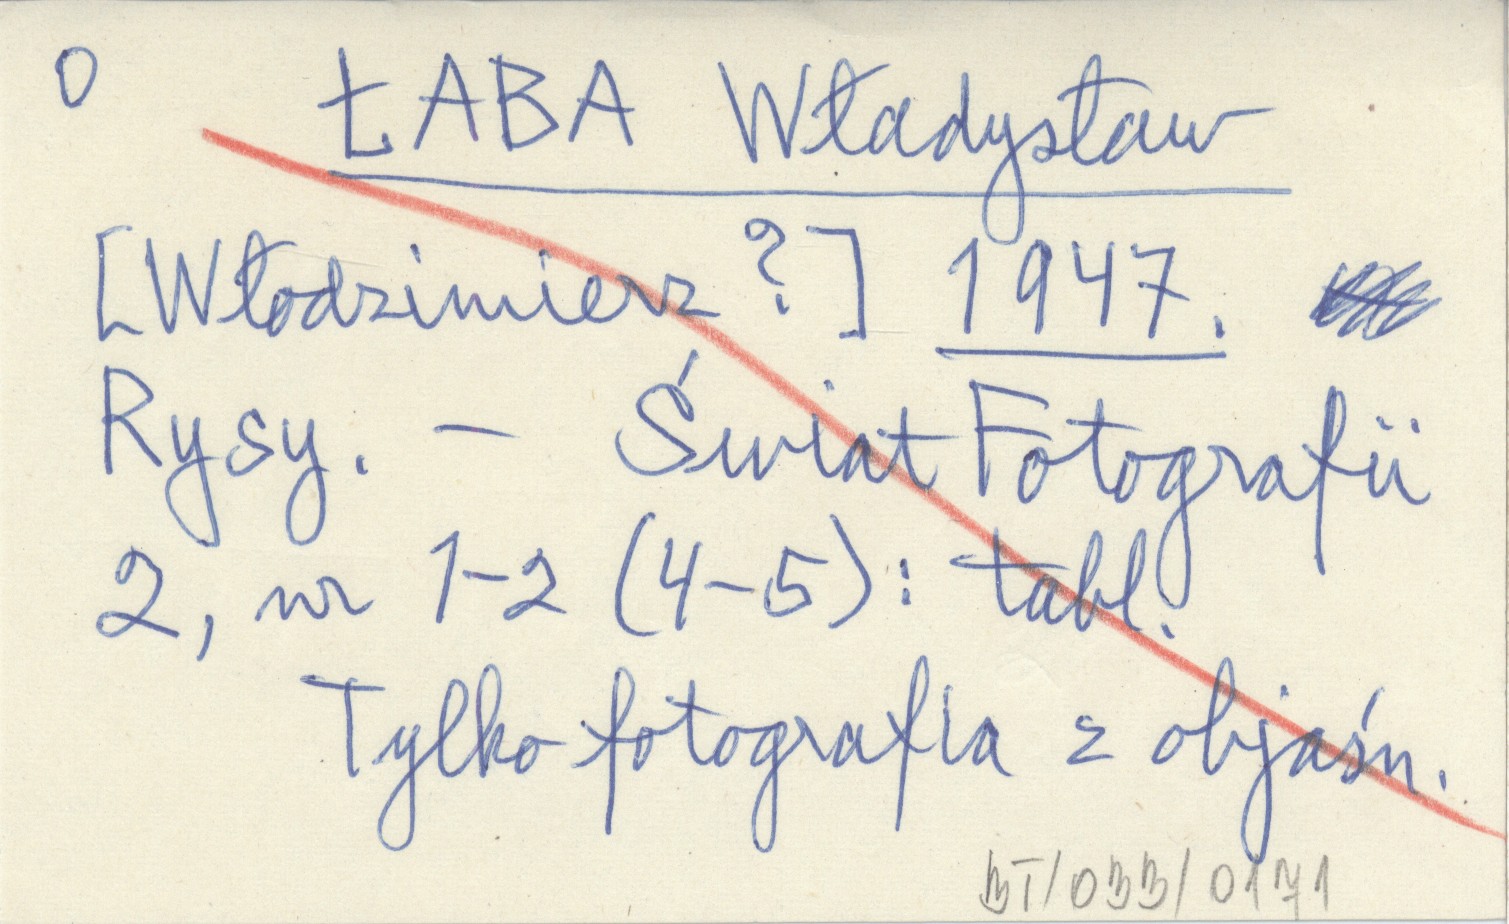 0 ŁABA Władysław
[Włodzimierz ?] 1947.
Rysy. – Świat Fotografii
2, nr 1-2 (4-5): tabl.
Tylko fotografia z objaśn.
BT/033/0171